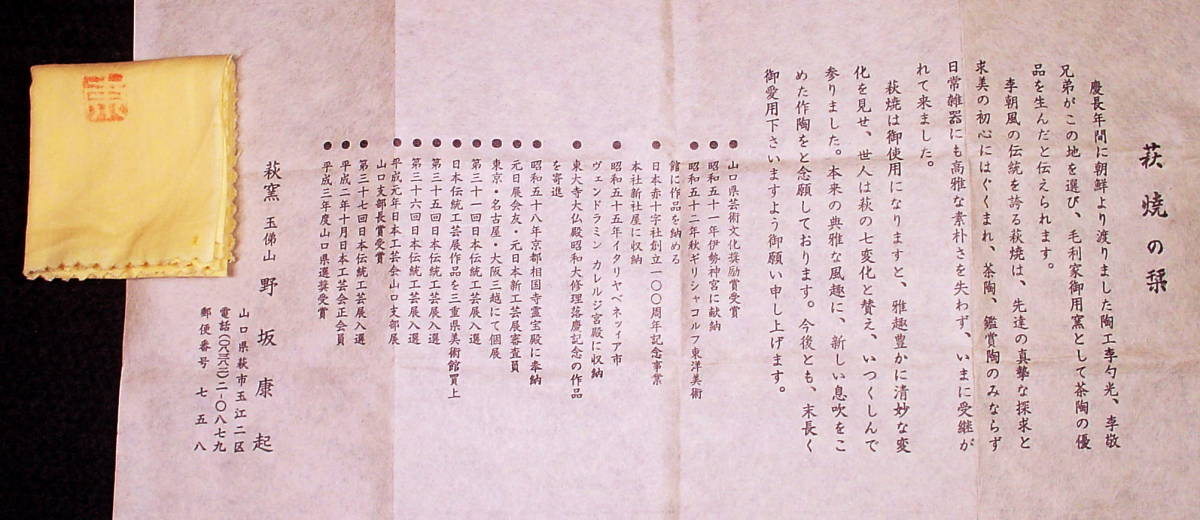 萩焼の栞
慶長年間に朝鮮より渡りました陶工李勺光、李敬
兄弟がこの地を選び、毛利家御用窯として茶陶の優
品を生んだと伝えられます。
李朝風の伝統を誇る萩焼は、先達の真摯な探求と
求美の初心にはぐくまれ、茶陶、鑑賞陶のみならず
日常雑器にも高雅な素朴さを失わず、いまに受継が
れて来ました。
萩焼は御使用になりますと、雅趣豊かに清妙な変
化を見せ、世人は萩の七変化と賛え、いつくしんで
参りました。本来の典雅な風趣に、新しい息吹をこ
めた作陶をと念願しております。今後とも、末長く
御愛用下さいますよう御願い申し上げます。
●山口県芸術文化奨励賞受賞
●昭和五十一年伊勢神宮に献納
●昭和五十二年秋ギリシャコルフ東洋美術
館に作品を納める
●日本赤十字社創立一〇〇周年記念事業
本社新社屋に収納
●昭和五十五年イタリヤベネッィア市
ヴェンドラミン カレルジ宮殿に収納
●東大寺大仏殿昭和大修理落慶記念の作品
を寄進
●昭和五十八年京都相国寺霊宝殿に奉納
●元日展会友・元日本新工芸展審査員
●東京・名古屋・大阪三越にて個展
●第三十一回日本伝統工芸展入選
●日本伝統工芸展作品を三重県美術館買上
●第三十五回日本伝統工芸展入選
●第三十六回日本伝統工芸展入選
●平成元年日本工芸会山口支部展
山口支部長賞受賞
●第三十七回日本伝統工芸展入選
●平成二年十月日本工芸会正会員
●平成三年度山口県選奨受賞
萩窯 玉佛山 野坂康起
山口県萩市玉江二区
電話(〇八三八二)二-〇八七九
郵便番号 七五八